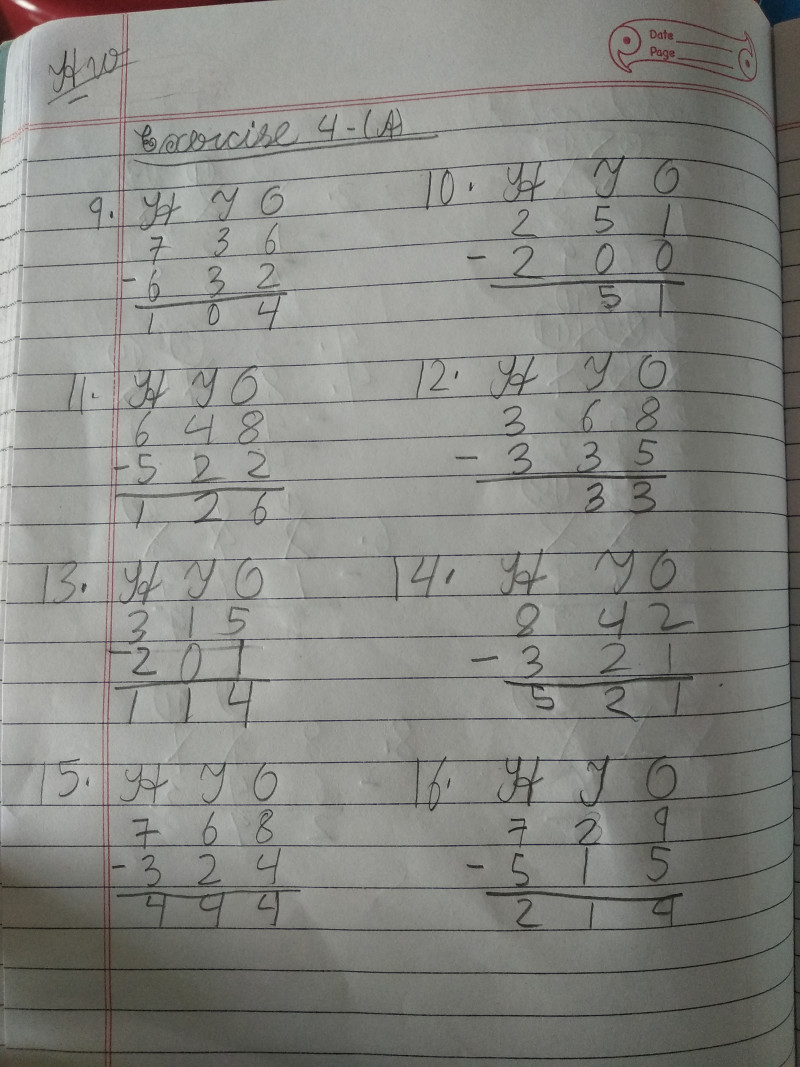 Date
Page
HW
Exercise 4-(A)
9. H T O
7 3 6
- 6 3 2
1 0 4
10. H T O
2 5 1
- 2 0 0
5 1
11. H T O
6 4 8
- 5 2 2
1 2 6
12. H T O
3 6 8
- 3 3 5
3 3
13. H T O
3 1 5
- 2 0 1
1 1 4
14. H T O
8 4 2
- 3 2 1
5 2 1
15. H T O
7 6 8
- 3 2 4
4 4 4
16. H T O
7 2 9
- 5 1 5
2 1 4